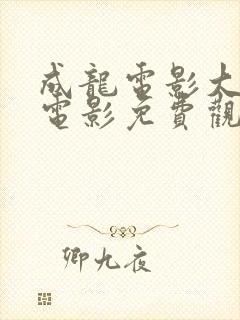 成龍電影大
電影免費觀
卿九夜